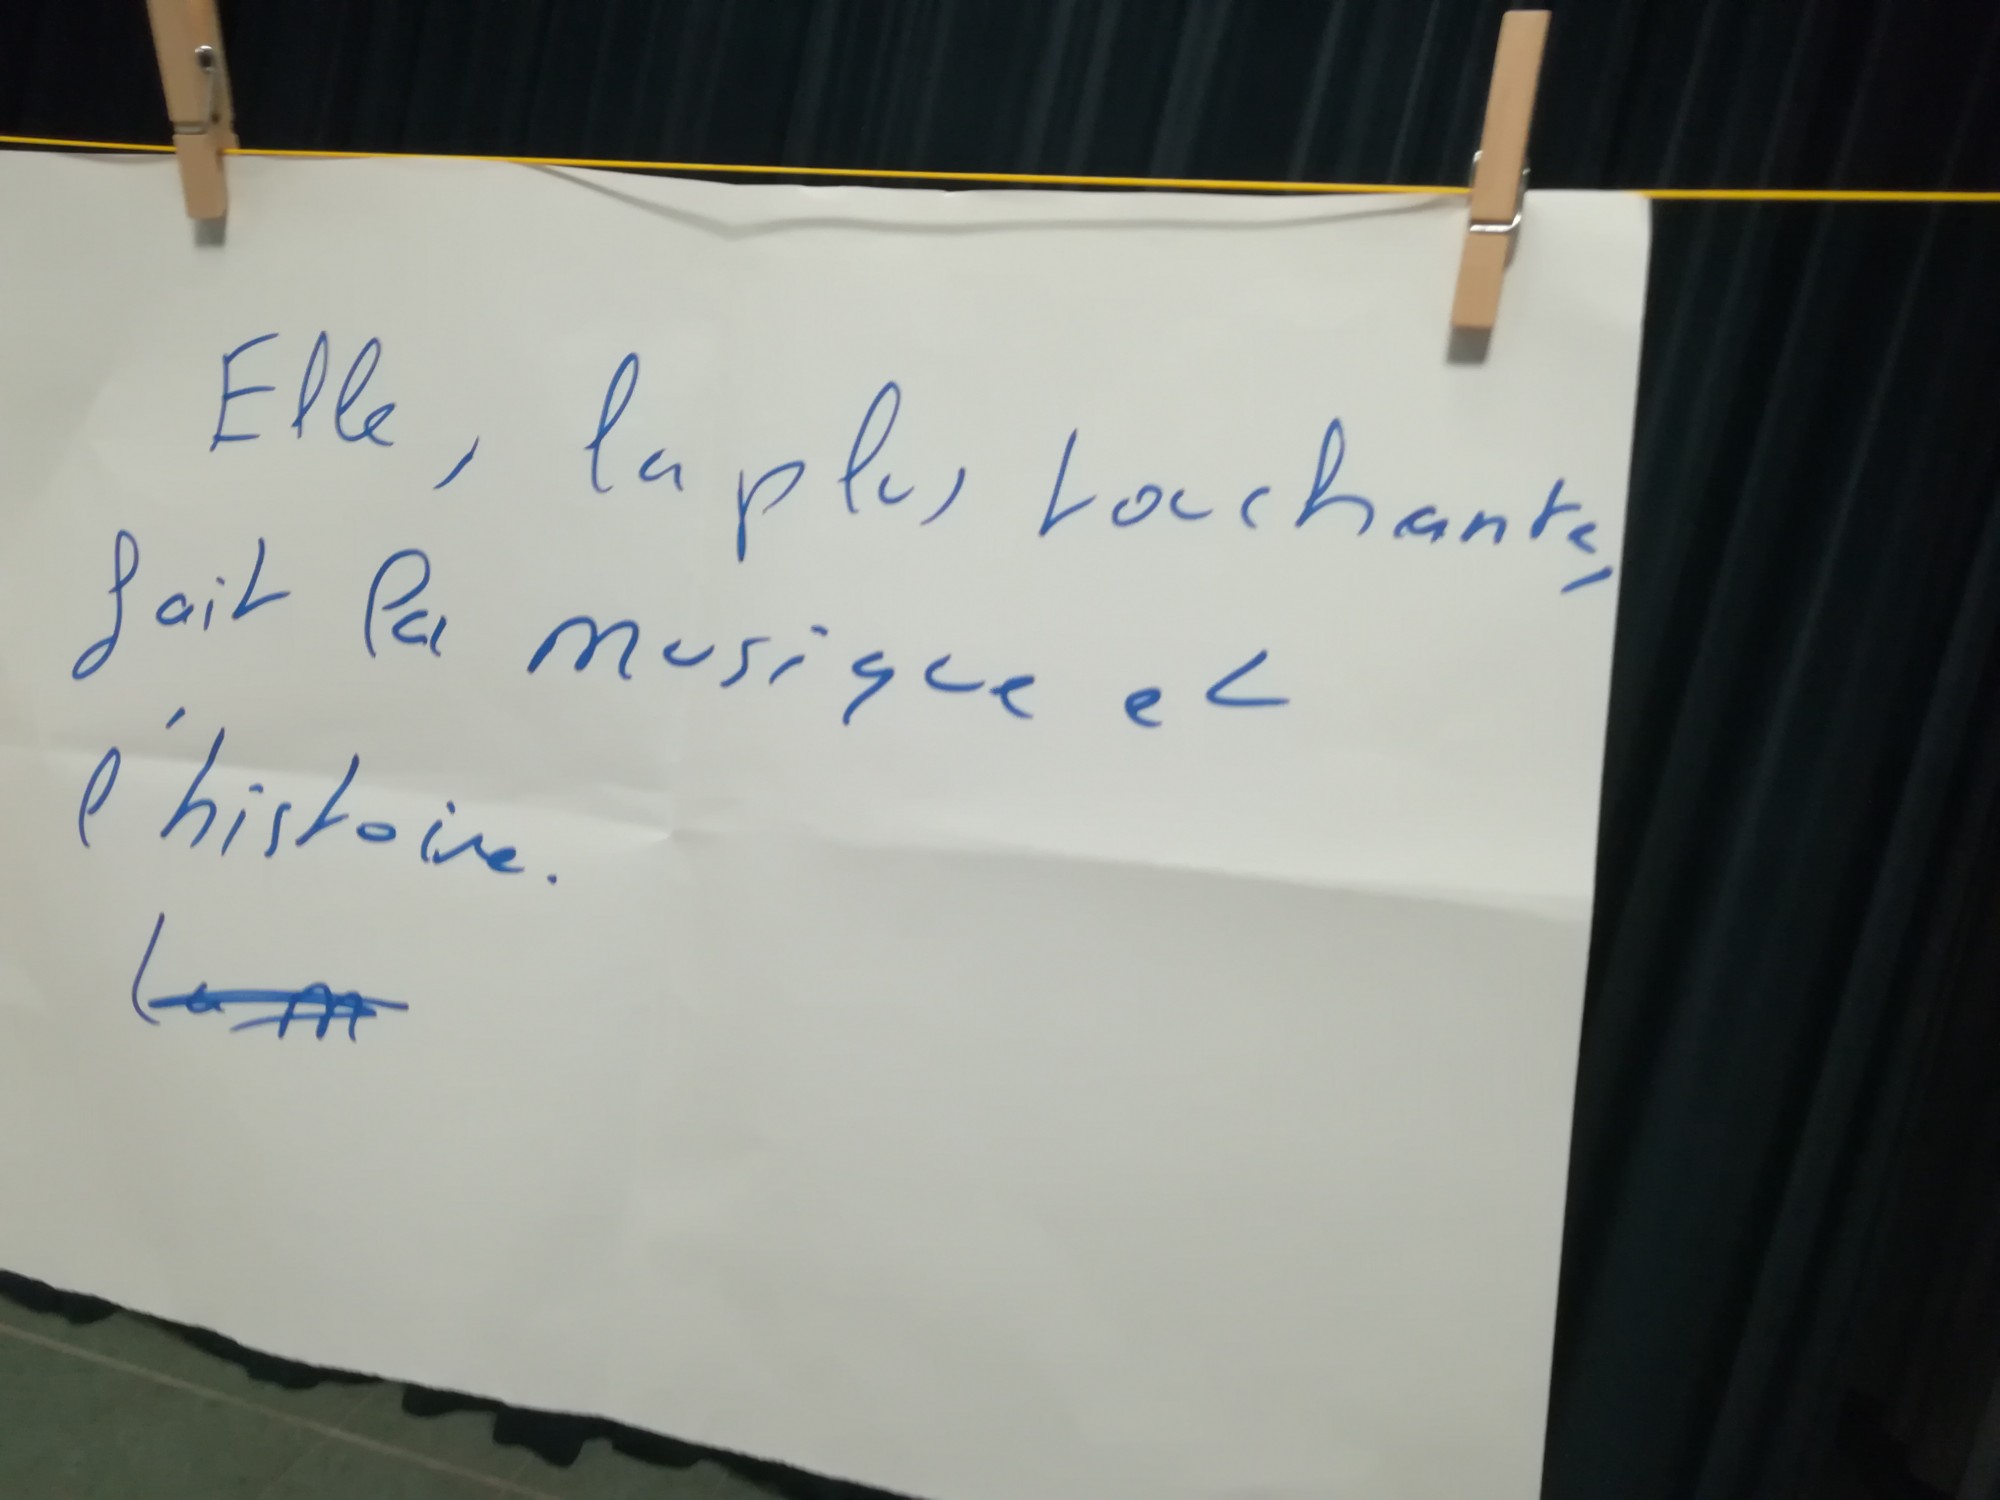 Elle, la plus touchante,
fait la musique et
l'histoire.
La m